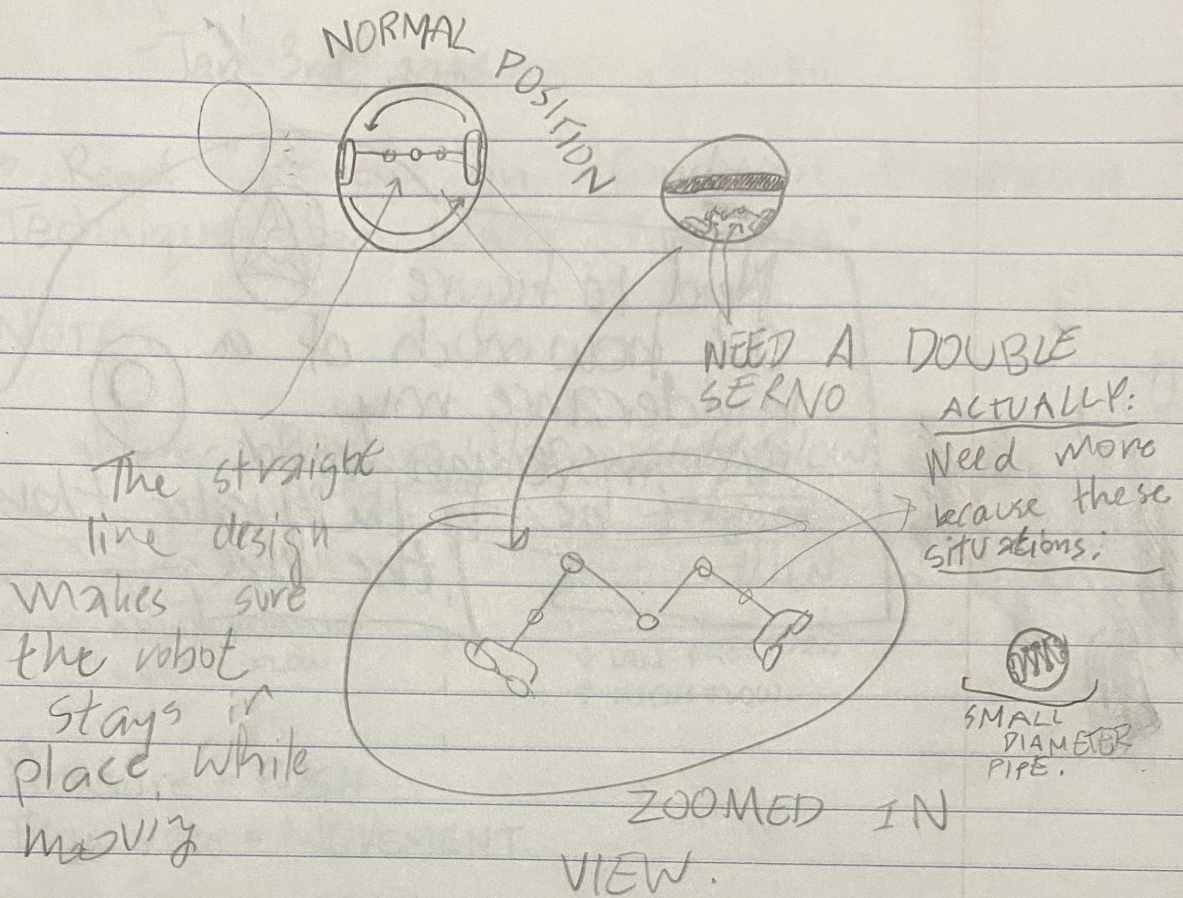 NORMAL
POSITION
NEED A DOUBLE
SERNO
ACTUALLY:
Need more
because these
situations:
The straight
line design
makes sure
the robot
stays in
place while
moving
SMALL
DIAMETER
PIPE.
ZOOMED IN
VIEW.